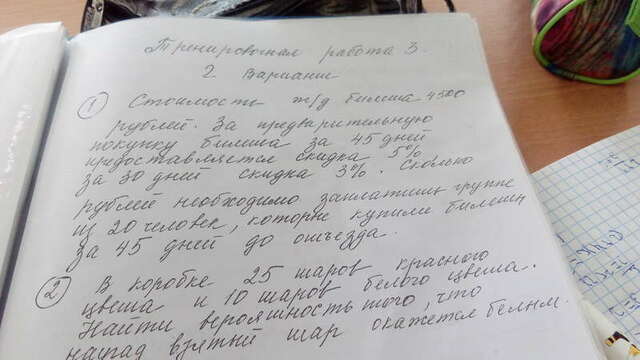 Тренировочная работа 3.
2 Вариант
① Стоимость ж/д билета 4500
рублей. За предварительную
покупку билета за 45 дней
предоставляется скидка 5%,
за 30 дней скидка 3%. Сколько
рублей необходимо заплатить группе
из 20 человек, которые купили билеты
за 45 дней до отъезда.
② В коробке 25 шаров красного
цвета и 10 шаров белого цвета.
Найти вероятность того, что
наугад взятый шар окажется белым.